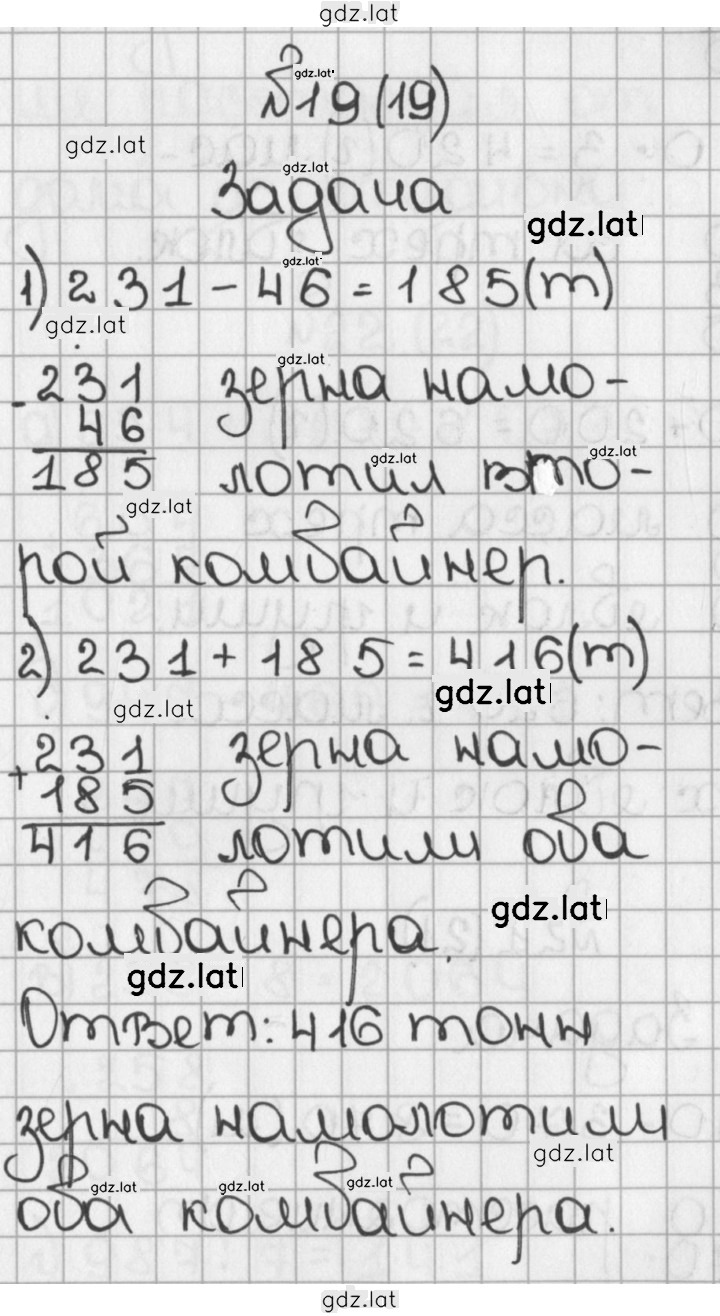 gdz.lat
№19(19)
gdz.lat
gdz.lat
gdz.lat
Задача
gdz.lat
gdz.lat
1) 231 - 46 = 185(т)
gdz.lat
gdz.lat
- 231 зерна намо-
46
gdz.lat
gdz.lat
185 лотил вто-
gdz.lat
рой комбайнер.
2) 231 + 185 = 416(т)
gdz.lat
gdz.lat
+ 231 зерна намо-
185
416 лотили оба
gdz.lat
комбайнера.
gdz.lat
Ответ: 416 тонн
зерна намолотили
gdz.lat
gdz.lat gdz.lat gdz.lat
оба комбайнера.
gdz.lat